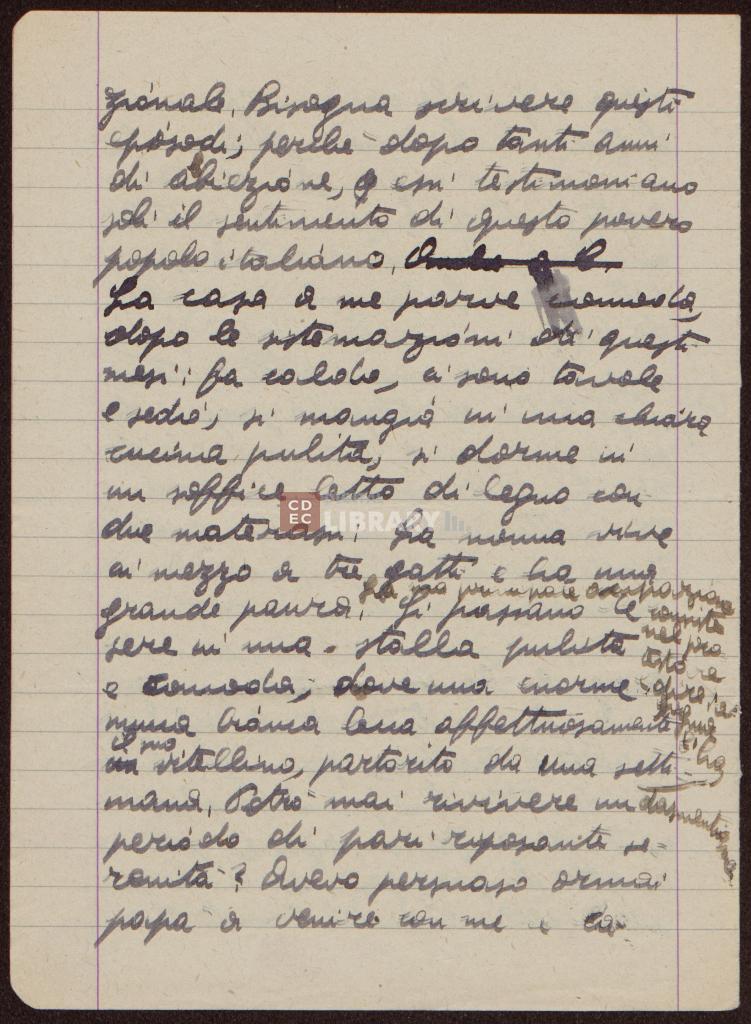 zionale. Bisogna scrivere questi
episodi; perché dopo tanti anni
di abiezione, essi testimoniano
soli il sentimento di questo povero
popolo italiano.
La casa a me parve comoda,
dopo le sistemazioni di questi
mesi: fa caldo, ci sono tavole
e sedie, si mangia in una chiara
cucina pulita, si dorme in
un soffice letto di legno con
due materassi. La nonna vive
in mezzo a tre gatti e ha una
grande paura. Si passano le
sere in una stalla pulita
e comoda, dove una enorme
mucca bianca lecca affettuosamente
il suo vitellino, partorito da una setti-
mana. Potrò mai rivivere un
periodo di pari riposante se-
renità? Avevo persuaso ormai
papà a venire con me e la
La sua principale occupazione
consiste
nel pro-
testare
CDEC LIBRARY